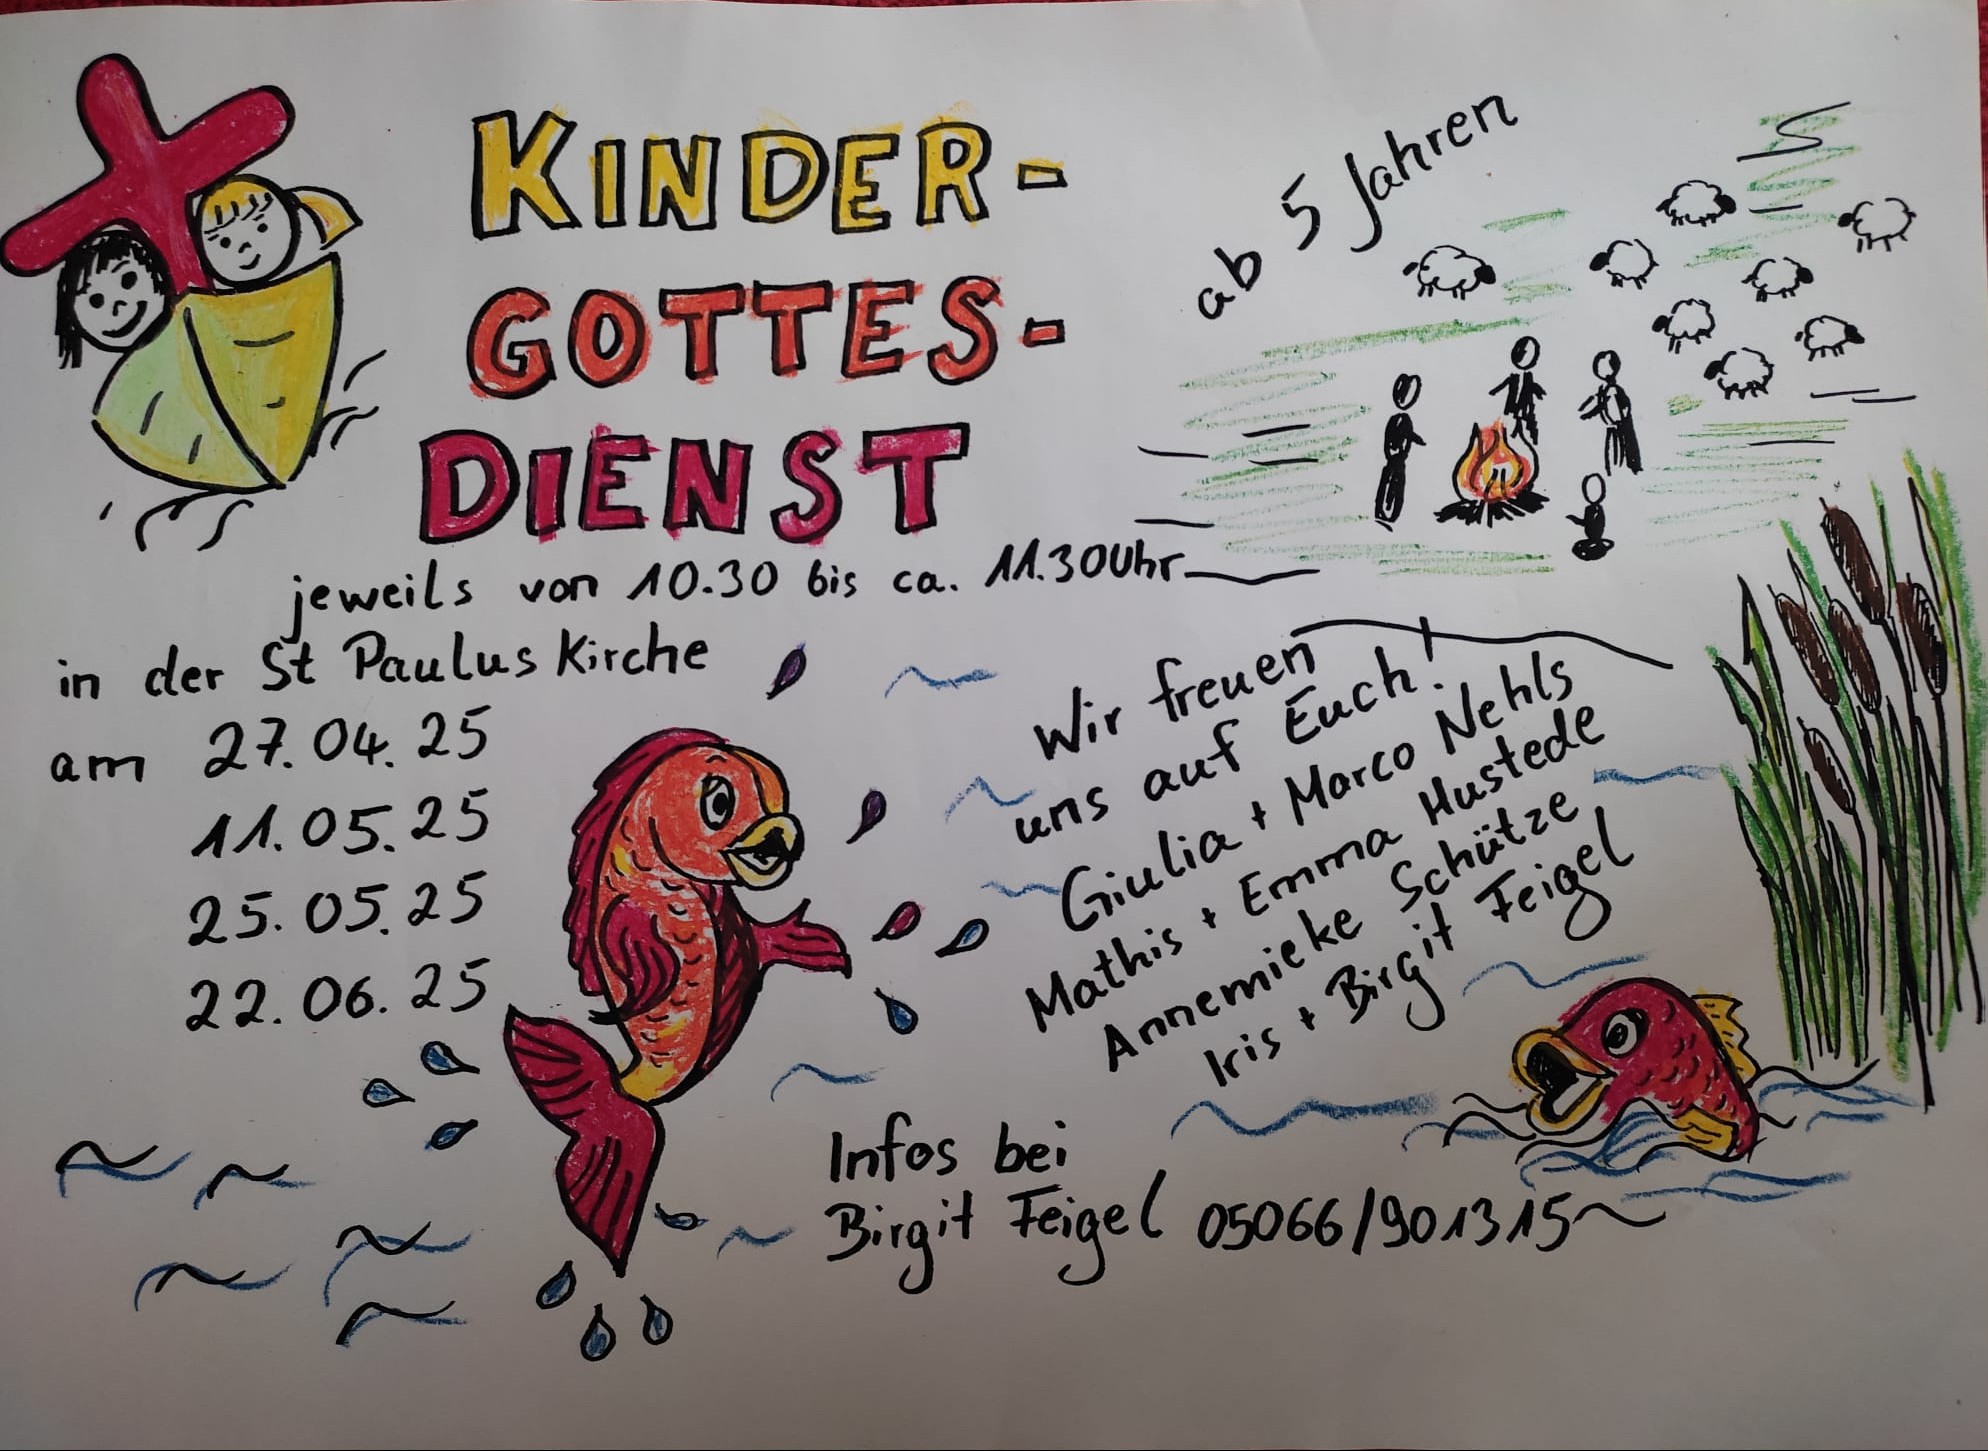 KINDER-
GOTTES-
DIENST
ab 5 Jahren
jeweils von 10.30 bis ca. 11.30 Uhr
in der St Paulus Kirche
am 27.04.25
11.05.25
25.05.25
22.06.25
Wir freuen
uns auf Euch!
Giulia + Marco Nehls
Mathis + Emma Hustede
Annemieke Schütze
Iris + Birgit Feigel
Infos bei
Birgit Feigel 05066/901315